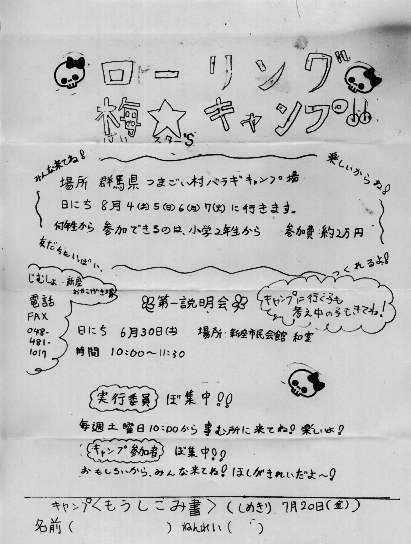 ローリング
梅☆キャンプ!!
スターS
みんな来てね!
楽しいからね!
場所 群馬県 つまごい村バラギキャンプ場
日にち 8月4(土)5(日)6(月)7(火)に行きます。
何年生から 参加できるのは、小学2年生から 参加費 約2万円
友だちといっぱい
つくれるよ!
じむしょ・新座
電話
FAX
048-
481-
1017
第一説明会
キャンプに行く子も
考え中の子もきてね!
日にち 6月30日(土) 場所・新座市民会館 和室
時間 10:00〜11:30
実行委員 ぼ集中!!
毎週土曜日10:00から事む所に来てね! 楽しいよ!
キャンプ参加者 ぼ集中!!
おもしろいから、みんな来てね! ほしがきれいだよ〜!
キャンプ〈もうしこみ書〉(しめきり 7月20日(金))
名前( ) ねんれい( )